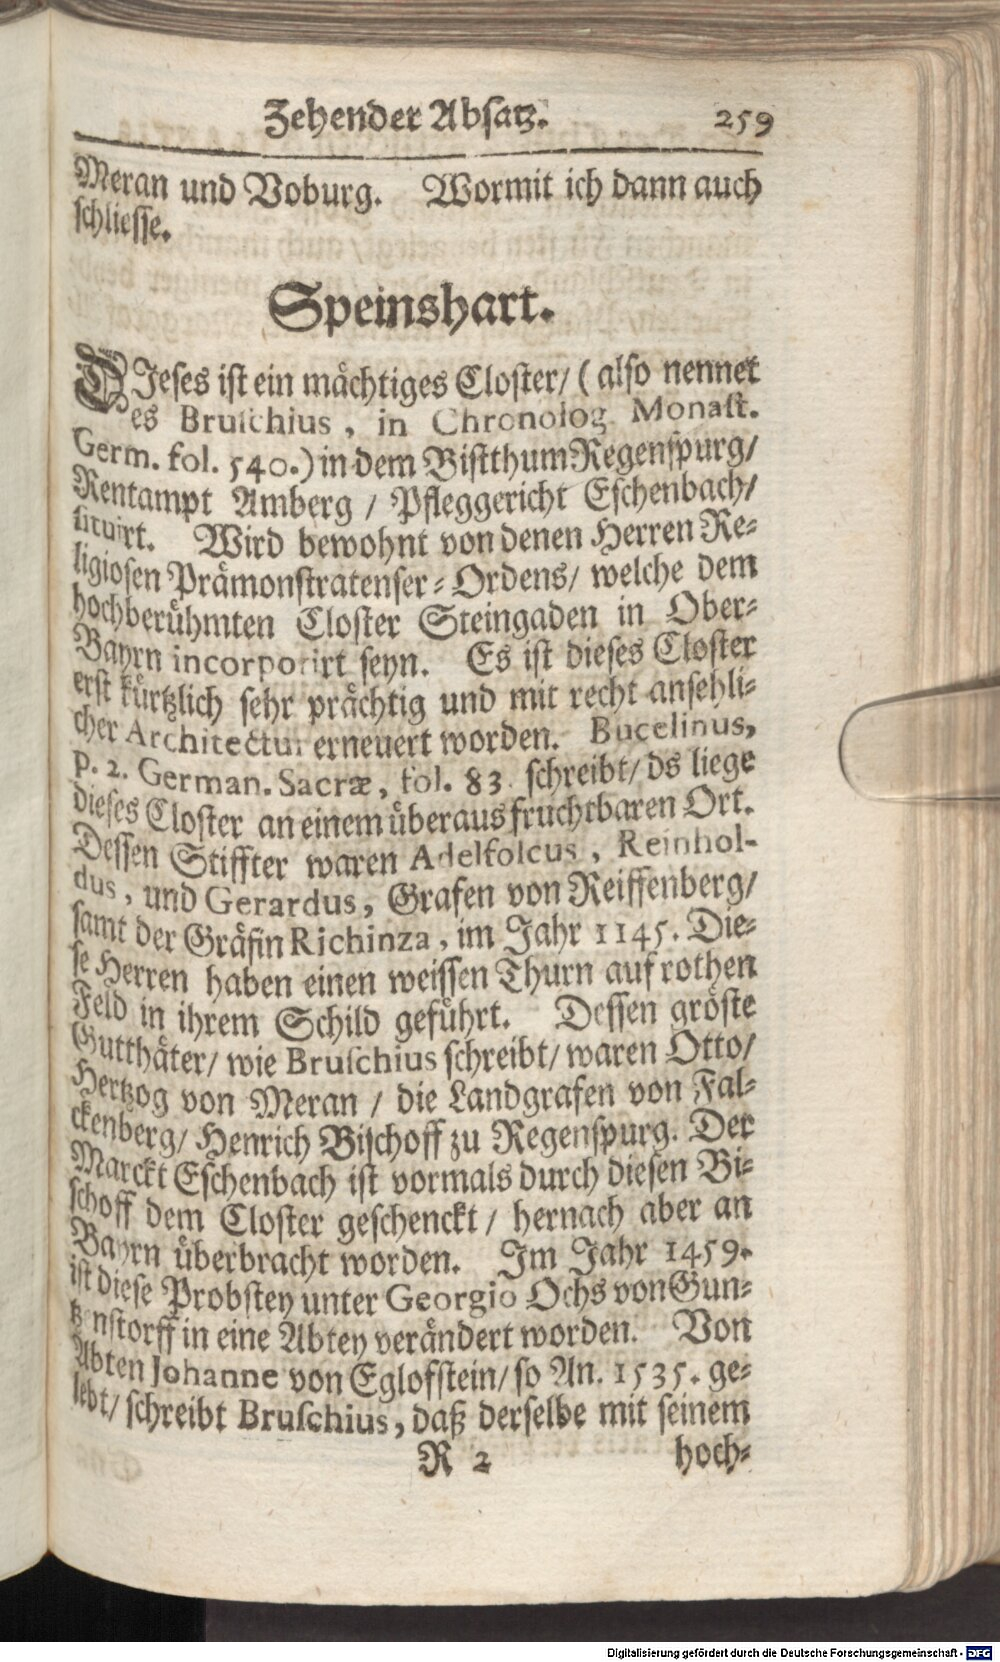 Zehender Absatz. 259
Meran und Voburg. Wormit ich dann auch
schliesse.
Speinshart.
DJeses ist ein mächtiges Closter/ (also nennet
es Bruschius, in Chronolog Monast.
Germ. fol. 540.) in dem Bistthum Regenspurg/
Rentampt Amberg / Pfleggericht Eschenbach/
situirt. Wird bewohnt von denen Herren Re-
ligiosen Prämonstratenser-Ordens/ welche dem
hochberühmten Closter Steingaden in Ober-
Bayrn incorporirt seyn. Es ist dieses Closter
erst kürtzlich sehr prächtig und mit recht ansehli-
cher Architectur erneuert worden. Bucelinus,
p. 2. German. Sacræ, fol. 83. schreibt/ ds liege
dieses Closter an einem überaus fruchtbaren Ort.
Dessen Stiffter waren Adelfolcus, Reinhol-
dus, und Gerardus, Grafen von Reiffenberg/
samt der Gräfin Richinza, im Jahr 1145. Die-
se Herren haben einen weissen Thurn auf rothen
Feld in ihrem Schild geführt. Dessen gröste
Gutthäter/ wie Bruschius schreibt/ waren Otto/
Hertzog von Meran / die Landgrafen von Fal-
ckenberg/ Henrich Bischoff zu Regenspurg. Der
Marckt Eschenbach ist vormals durch diesen Bi-
schoff dem Closter geschenckt / hernach aber an
Bayrn überbracht worden. Im Jahr 1459.
ist diese Probstey unter Georgio Ochs von Gun-
tzenstorff in eine Abtey verändert worden. Von
Abten Johanne von Eglofstein/ so An. 1535. ge-
lebt/ schreibt Bruschius, daß derselbe mit seinem
R 2 hoch-
Digitalisierung gefördert durch die Deutsche Forschungsgemeinschaft - DFG